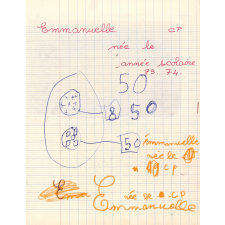 Emmanuelle CP
née le
année scolaire
73. 74.
50
8 50
50
Emmanuelle
née le
CP
Em
née le CP
Emmanuelle